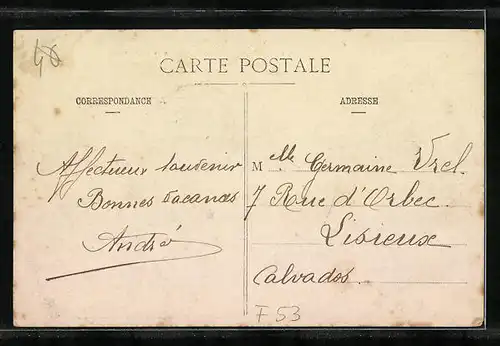 CARTE POSTALE
CORRESPONDANCE
Affectueux souvenir
Bonnes vacances
André
ADRESSE
Mlle Germaine Vrel.
7 Rue d'Orbec.
Lisieux
Calvados.
F 53